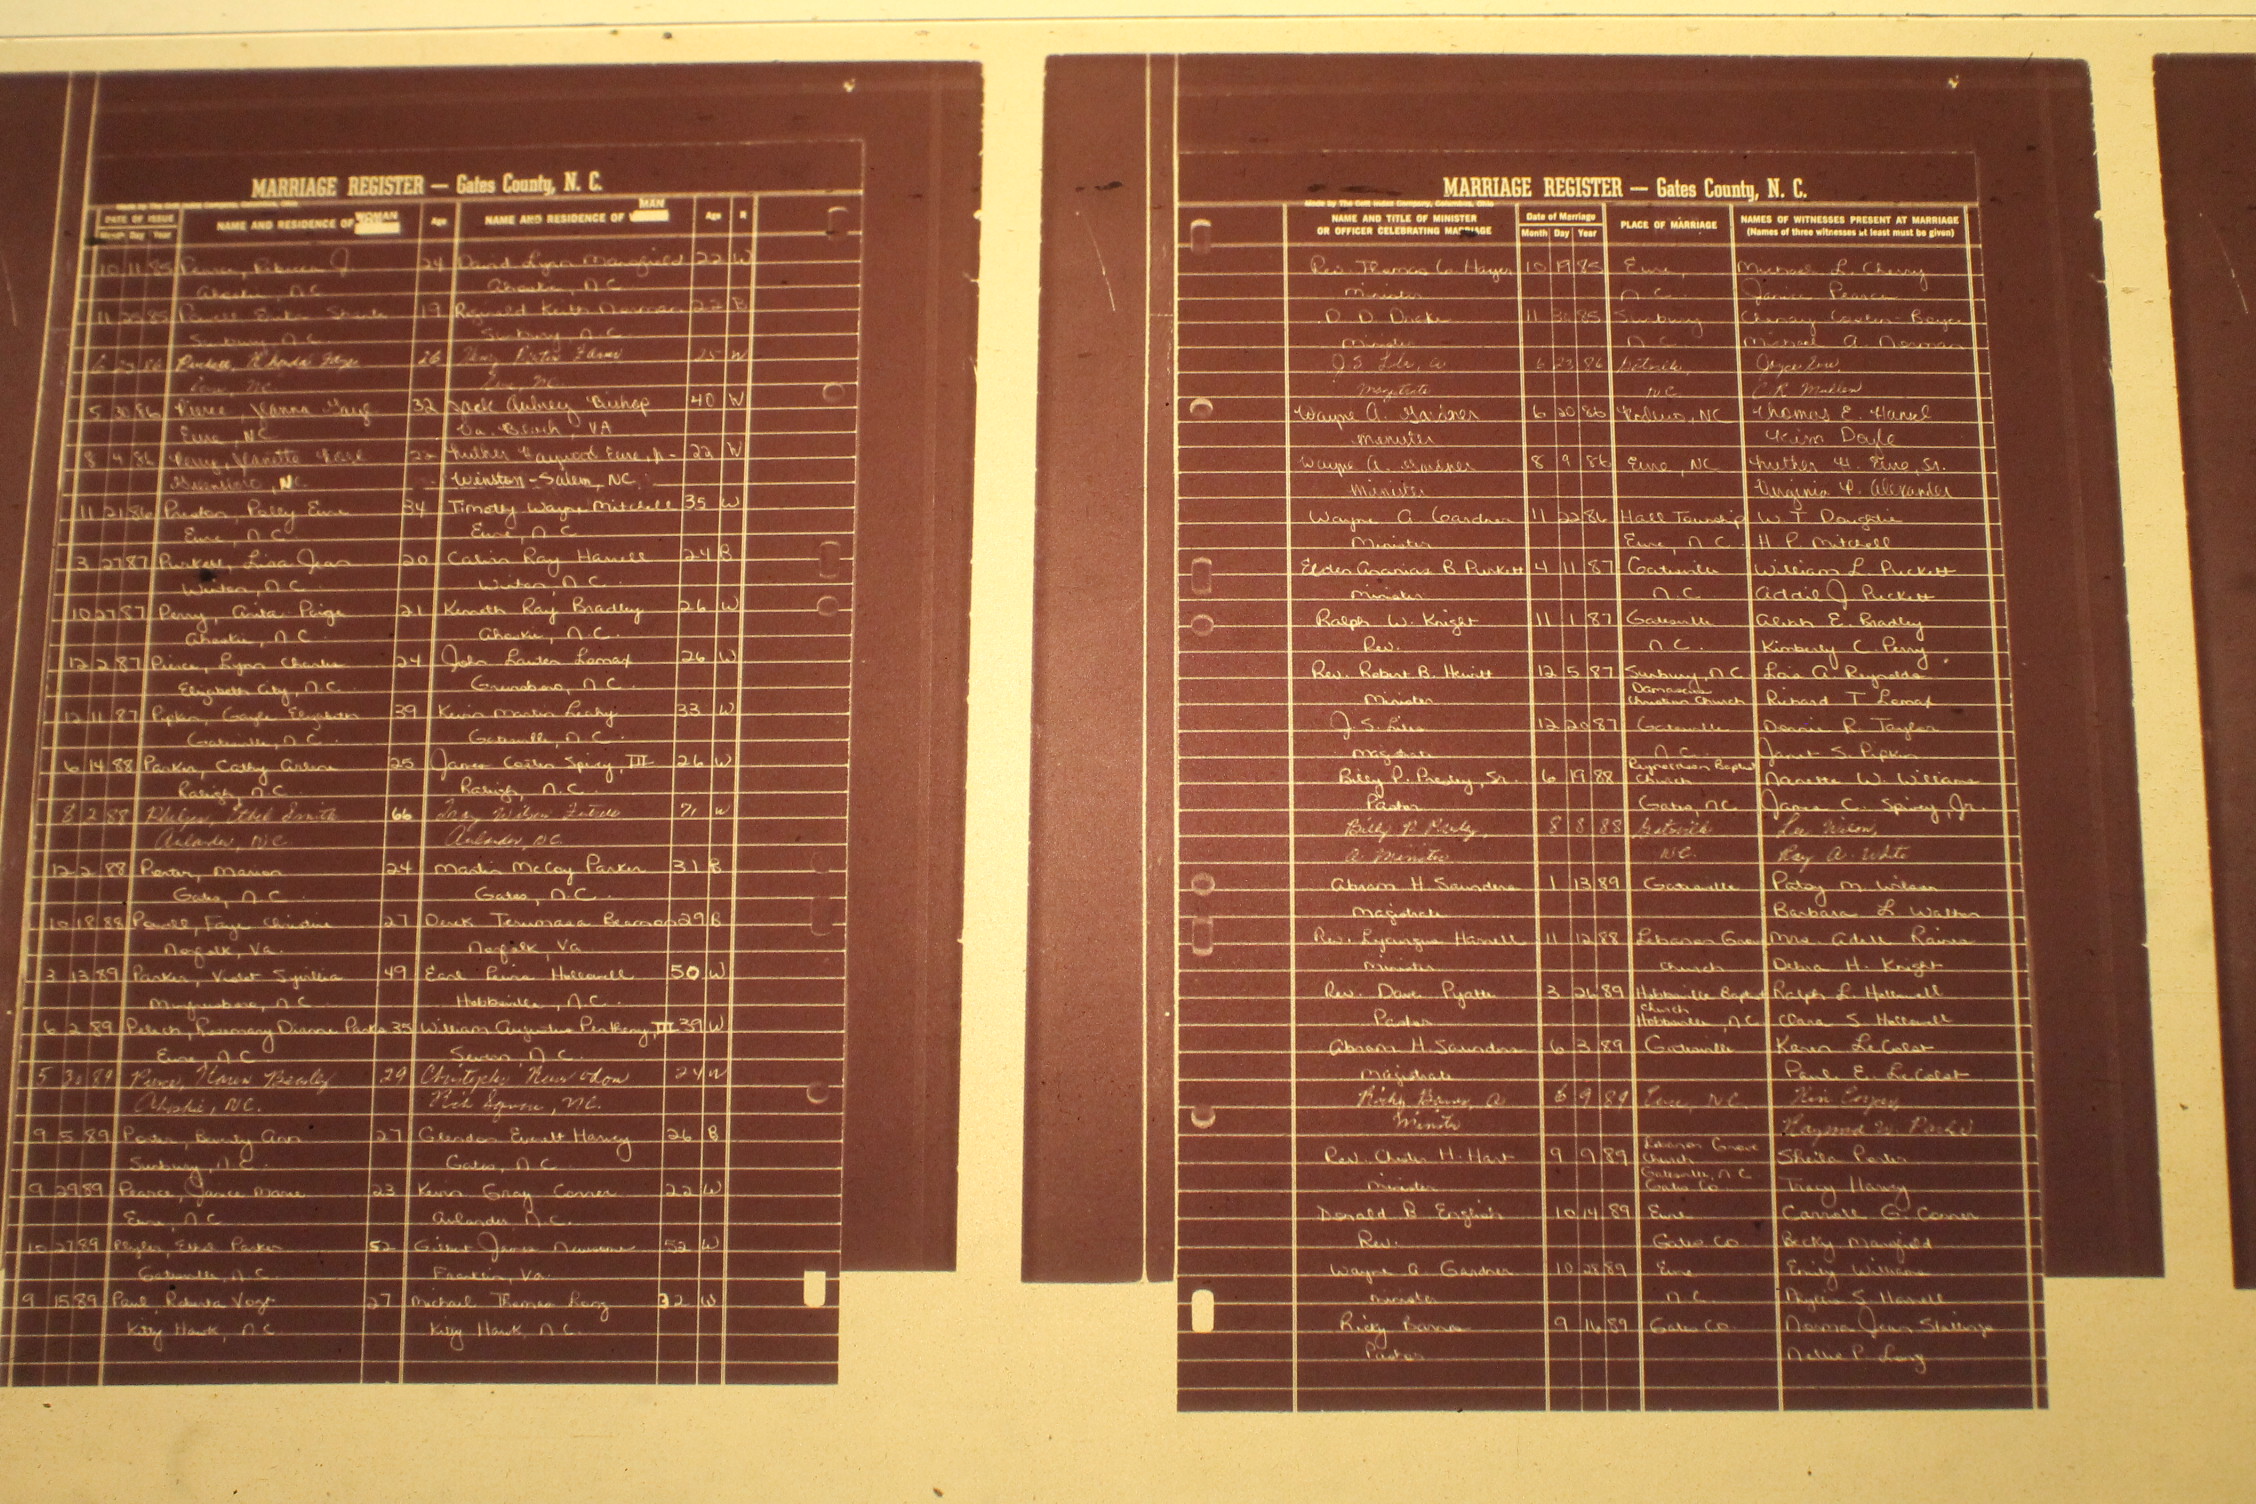 MARRIAGE REGISTER — Gates County, N. C.
DATE OF ISSUE
Month Day Year
NAME AND RESIDENCE OF WOMAN
Age
NAME AND RESIDENCE OF MAN
Age
R
10 11 85 Pearce, Rebecca J. 24 David Lynn Mansfield 22 W
Ahoskie, N.C. Ahoskie, N.C.
11 25 85 Powell 19 Reginald Keith Norman 22 B
Sunbury, N.C. Sunbury, N.C.
6 23 86 Puckett, Rhonda Faye 26 25 W
Eure, NC Eure, NC
5 30 86 Pierce, 32 Jack Aubrey Bishop 40 W
Eure, NC Va. Beach, VA
8 4 86 Perry, 22 Luther Haywood Eure, Jr. 22 W
Greensboro, NC Winston-Salem, NC
11 21 86 Preston, Polly Eure 34 Timothy Wayne Mitchell 35 W
Eure, N.C. Eure, N.C.
3 27 87 Purkett, Lisa Jean 20 Calvin Ray Harrell 24 B
Winton, N.C. Winton, N.C.
10 27 87 Perry, Anita Paige 21 Kenneth Ray Bradley 26 W
Ahoskie, N.C. Ahoskie, N.C.
12 2 87 Pierce, Lynn Charlene 24 John Lawton Lomax 26 W
Elizabeth City, N.C. Greensboro, N.C.
12 11 87 Pipkin, Gayle Elizabeth 39 Kevin Martin Leahy 33 W
Gatesville, N.C. Gatesville, N.C.
6 14 88 Parker, Cathy Arlene 25 James Carter Spivey, III 26 W
Raleigh, N.C. Raleigh, N.C.
8 2 88 Phelps, Ethel Smith 66 71 W
Aulander, N.C. Aulander, N.C.
12 2 88 Porter, Marion 24 Martin McCoy Parker 31 B
Gates, N.C. Gates, N.C.
10 18 88 Powell, Faye Christine 27 Derek Terumasa Beamon 29 B
Norfolk, Va. Norfolk, Va
3 13 89 Parker, Violet Synthia 49 Earl Hollowell 50 W
Murfreesboro, N.C. Hobbsville, N.C.
6 2 89 Rosemary Dianne Parker 35 William Augustus III 39 W
Eure, N.C. Severn, N.C.
5 30 89 Pierce, Karen Beasley 29 Christopher 24 W
Ahoskie, N.C. Rich Square, N.C.
9 5 89 Porter, Beverly Ann 27 Glendon Everett Harvey 26 B
Sunbury, N.C. Gates, N.C.
9 29 89 Pearce, Janice Marie 23 Kevin Gray Conner 22 W
Eure, N.C. Aulander, N.C.
10 27 89 Parker 52 Gilbert James Newsome 52 W
Gatesville, N.C. Franklin, Va.
9 15 89 Paul, Roberta Vogt 27 Michael Thomas Long 32 W
Kitty Hawk, N.C. Kitty Hawk, N.C.
MARRIAGE REGISTER — Gates County, N. C.
Made by The Cott Index Company, Columbus, Ohio
NAME AND TITLE OF MINISTER
OR OFFICER CELEBRATING MARRIAGE
Date of Marriage
Month Day Year
PLACE OF MARRIAGE
NAMES OF WITNESSES PRESENT AT MARRIAGE
(Names of three witnesses at least must be given)
Rev. Thomas 10 19 85 Eure, Michael L. Cherry
Minister N.C. Janice Pearce
D. D. Drake 11 30 85 Sunbury
Minister N.C. Michael A. Norman
J.S. 6 23 86 Gatesville, Joyce Eure
Magistrate NC C.R. Mullen
Wayne A. Gardner 6 20 86 Roduco, NC Thomas E. Harrel
Minister Kim Doyle
Wayne A. Gardner 8 9 86 Eure, NC Luther H. Eure, Sr.
Minister Virginia P. Alexander
Wayne A. Gardner 11 22 86 Hall Township W. T. Doughtie
Minister Eure, N.C. H. P. Mitchell
Elder Ananias B. Purkett 4 11 87 Gatesville William L. Puckett
Minister N.C. Addie J. Puckett
Ralph W. Knight 11 1 87 Gatesville E. Bradley
Rev. N.C. Kimberly C. Perry
Rev. Robert B. Hewitt 12 5 87 Sunbury, N.C. Lois A. Reynolds
Minister Damascus Christian Church Richard T. Lomax
J. S. Liles 12 20 87 Gatesville Donnie R. Taylor
Magistrate N.C. Janet S. Pipkin
Billy P. Presley, Sr. 6 19 88 Reynoldson Baptist Church Nanette W. Williams
Pastor Gates, N.C. James C. Spivey, Jr.
Billy P. Presley, 8 8 88 Gatesville Lee Wilson,
a Minister N.C. Ray A. White
Abram H. Saunders 1 13 89 Gatesville Patsy M. Wilson
Magistrate Barbara L. Walton
Rev. Harrell 11 12 88 Lebanon Grove Mrs. Adell Raines
Minister Church Debra H. Knight
Rev. Dave Pyatte 3 26 89 Hobbsville Baptist Church Ralph L. Hollowell
Pastor Hobbsville, N.C. Clara S. Hollowell
Abram H. Saunders 6 3 89 Gatesville Karen LeColst
Magistrate Paul E. LeColst
Ricky Banks, a 6 9 89 Eure, N.C. Kim
Minister Raymond W. Parker
Rev. Chester H. Hart 9 9 89 Lebanon Grove Church Sheila Porter
Minister Gatesville, N.C. Gates Co. Tracy Harvey
Donald B. English 10 14 89 Eure Carroll G. Conner
Rev. Gates Co Becky Mansfield
Wayne A. Gardner 10 28 89 Eure Emily Williams
Minister N.C. Phyllis S. Harrell
Ricky 9 16 89 Gates Co. Norma Jean Stallings
Pastor Nellie P. Long